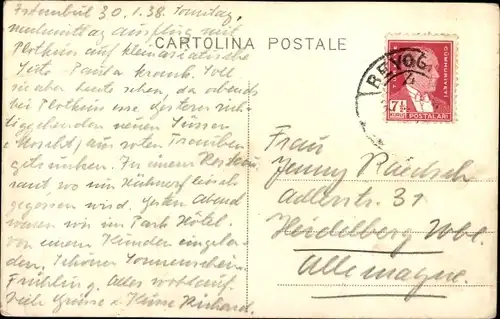 Istambul 30.1.38. Sonntag,
nachmittag Ausflug mit
Plotkins auf kleinasiatische
Seite. Paula krank. Soll
sie aber heute sehen, da abends
bei Plotkins esse gestern rich-
tiggehenden neuen süssen
(Mosaht) aus roten Trauben
getrunken. In einem Restau-
rant, wo nur Hühnerfleisch
gegessen wird. Gestern Abend
waren wir im Park Hôtel
von einem Kunden eingela-
den. Schöner Sonnenschein
Frühling. Alles wohlauf.
Viele Grüsse u Küsse Richard.
CARTOLINA POSTALE
BEYOG
7½
POSTALARI
Frau
Jenny
Adlerstr. 31
Heidelberg
Allemagne.